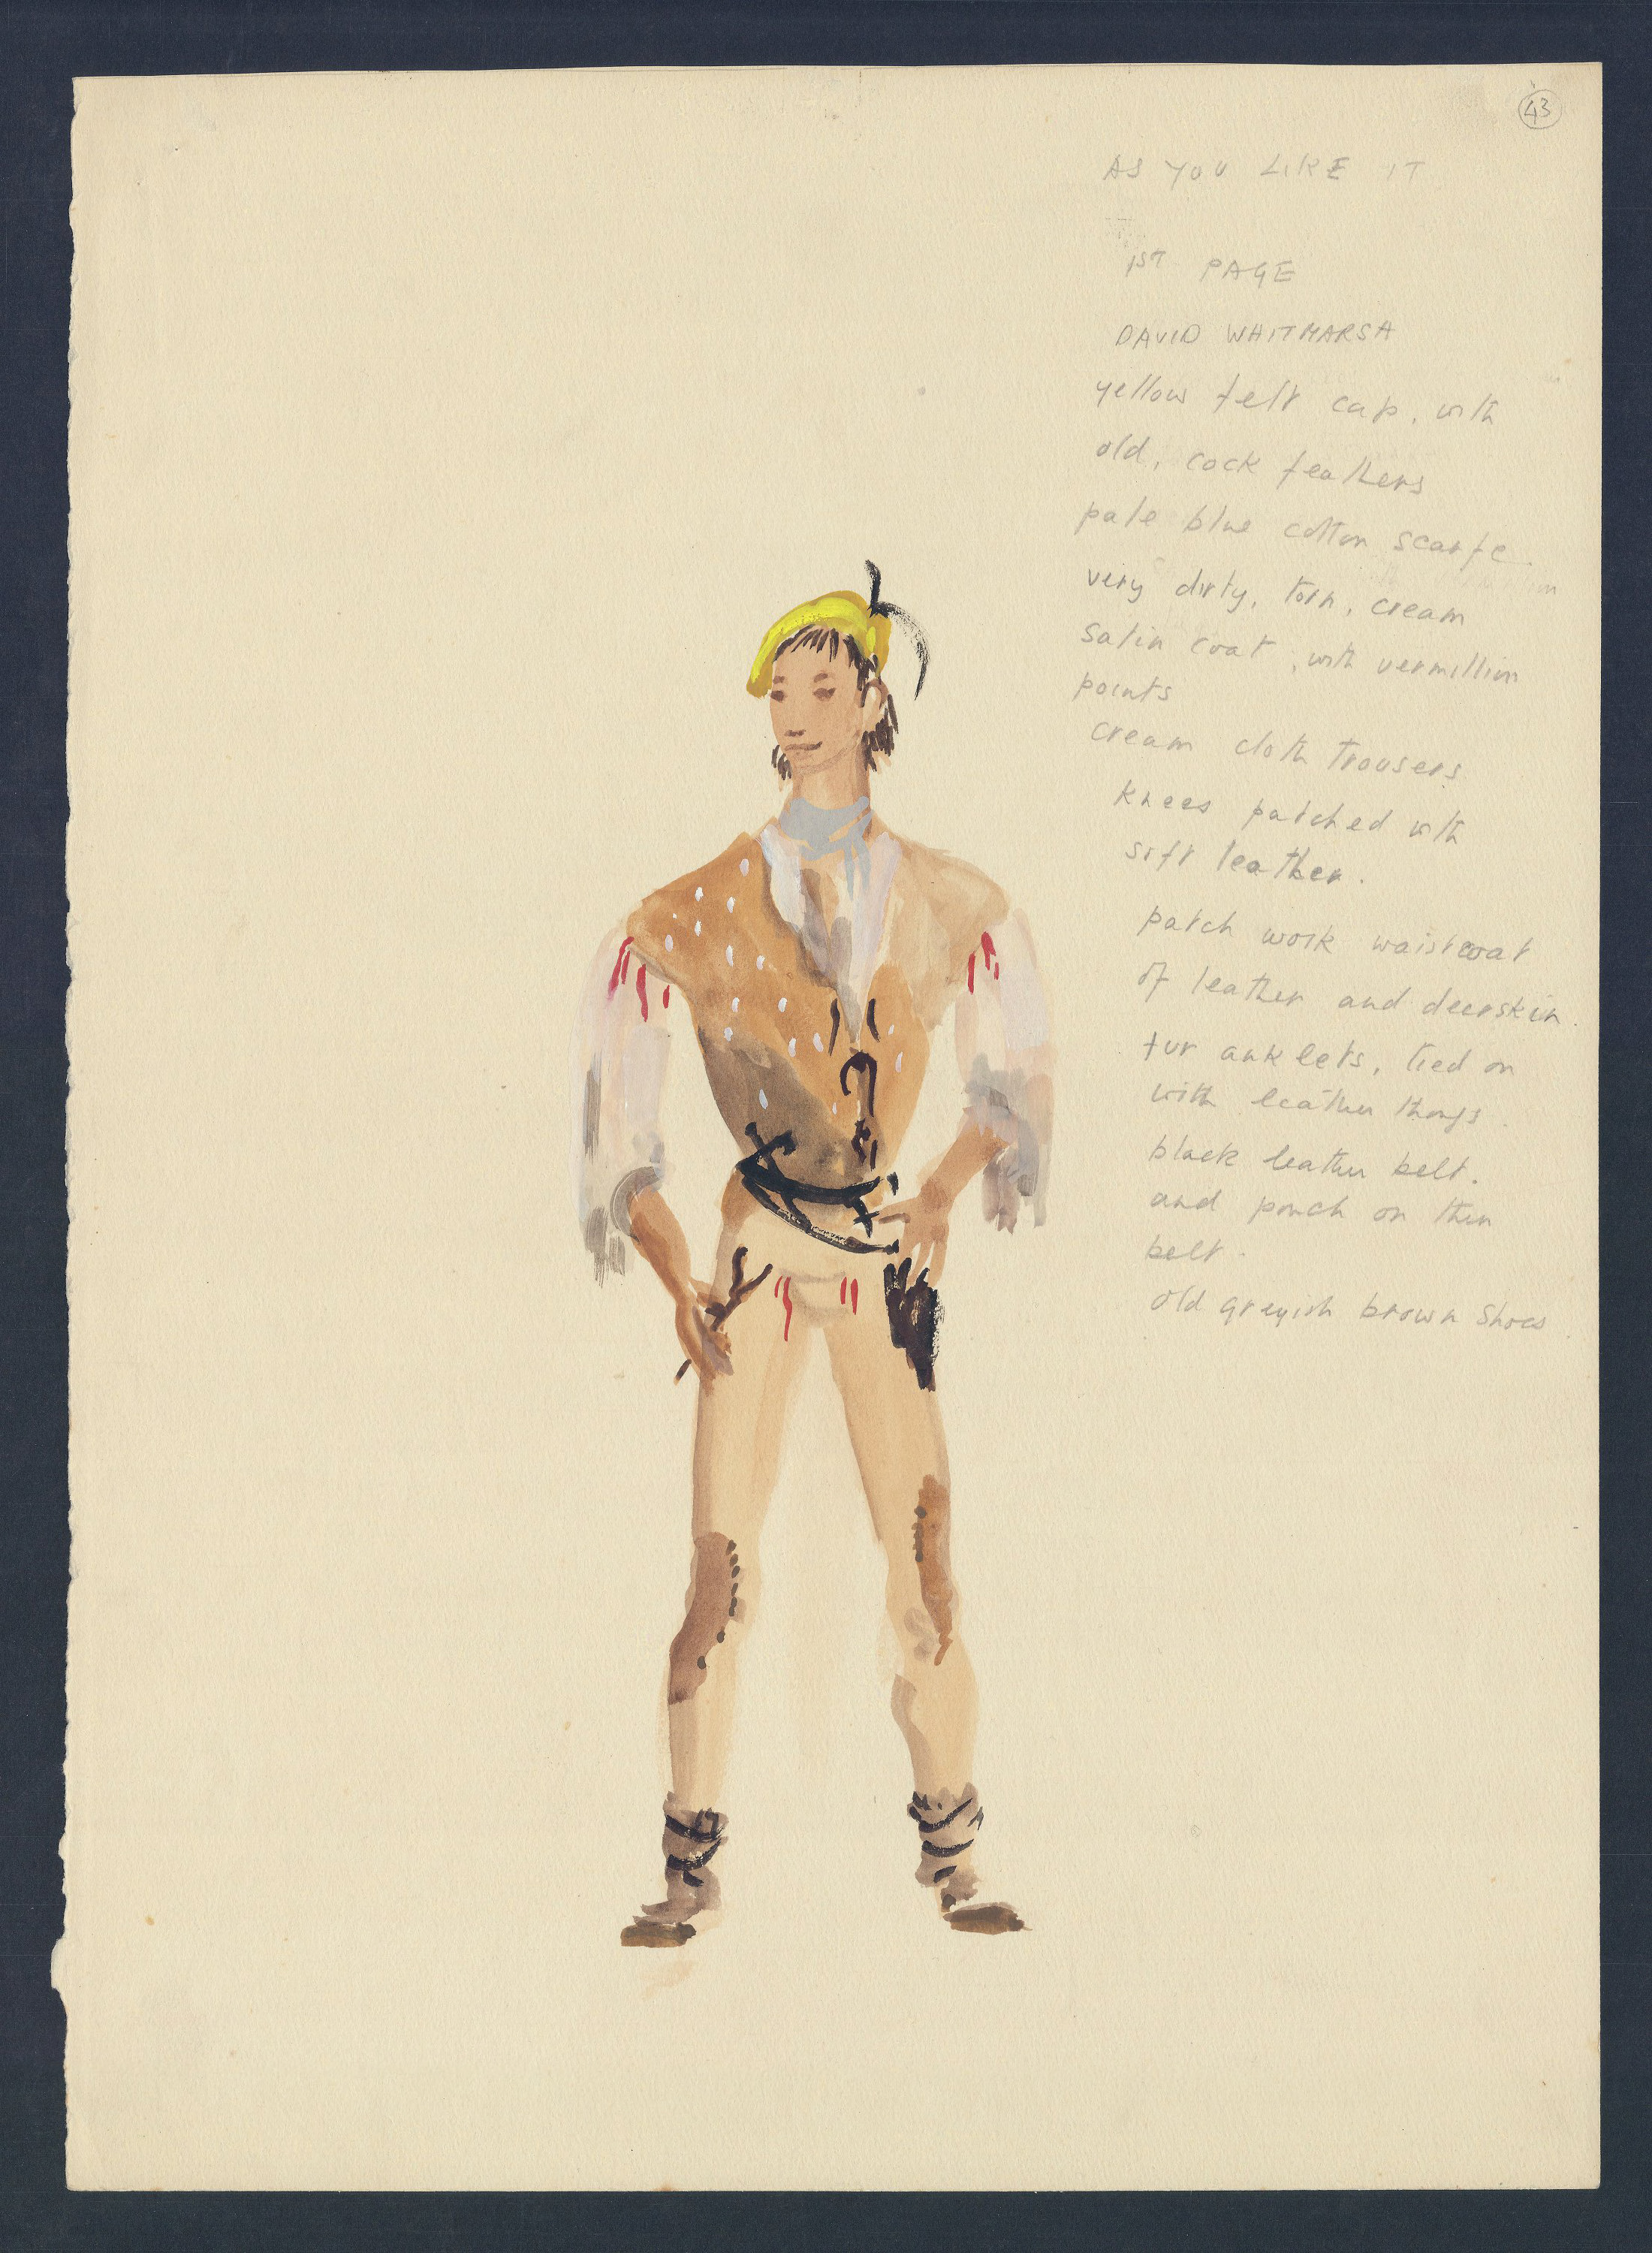 43
AS YOU LIKE IT
1ST PAGE
DAVID WHITMARSH
yellow felt cap, with
old, cock feathers
pale blue cotton scarfe.
very dirty, torn, cream
satin coat, with vermillion
points
cream cloth trousers
knees patched with
soft leather.
patch work waistcoat
of leather and deerskin.
fur anklets, tied on
with leather thongs.
black leather belt.
and pouch on thin
belt.
old greyish brown shoes.